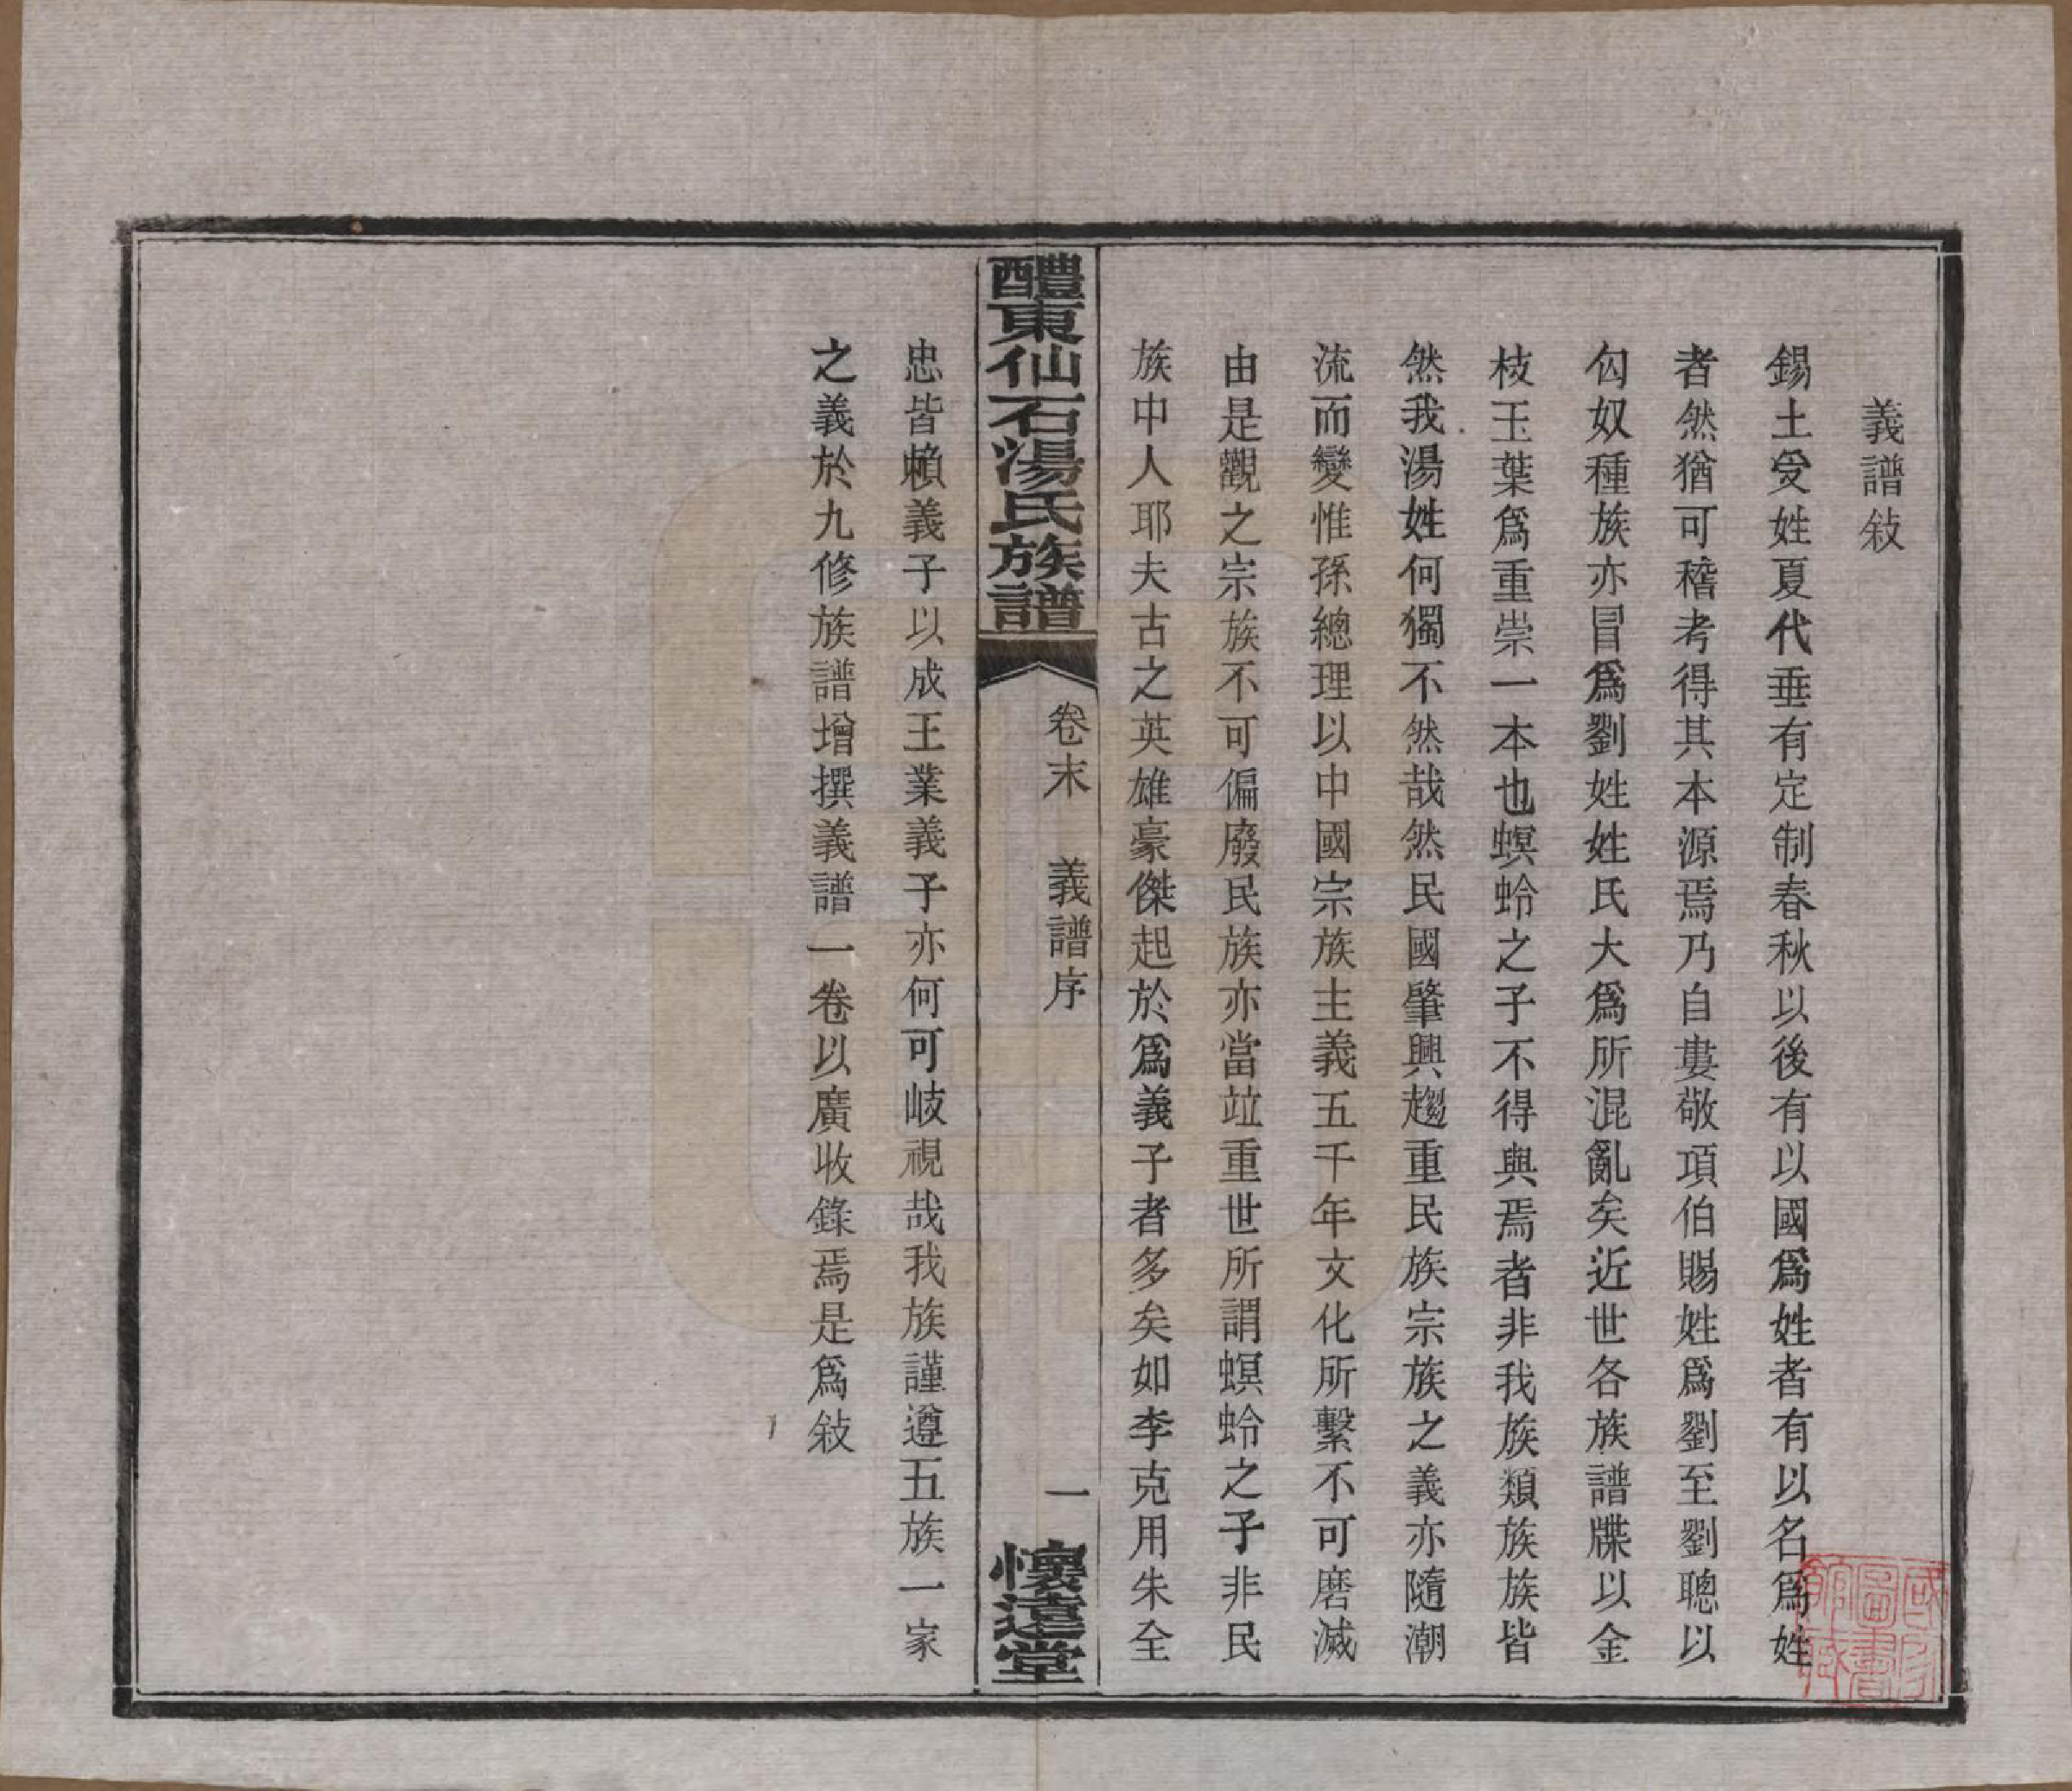 義譜敍
錫土受姓夏代垂有定制春秋以後有以國爲姓者有以名爲姓
者然猶可稽考得其本源焉乃自婁敬項伯賜姓爲劉至劉聰以
匈奴種族亦冒爲劉姓姓氏大爲所混亂矣近世各族譜牒以金
枝玉葉爲重崇一本也螟蛉之子不得與焉者非我族類族族皆
然我湯姓何獨不然哉然民國肇興趨重民族宗族之義亦隨潮
流而變惟孫總理以中國宗族主義五千年文化所繫不可磨滅
由是觀之宗族不可偏廢民族亦當竝重世所謂螟蛉之子非民
族中人耶夫古之英雄豪傑起於爲義子者多矣如李克用朱全
醴東仙石湯氏族譜
卷末 義譜序
一
懷遠堂
忠皆賴義子以成王業義子亦何可岐視哉我族謹遵五族一家
之義於九修族譜增撰義譜一卷以廣收錄焉是爲敍
國家圖書館藏